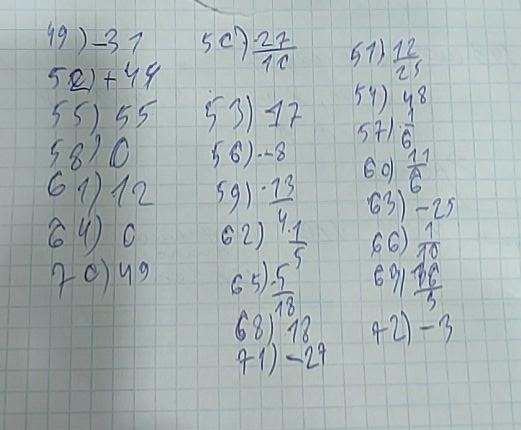 49) -31
52) +44
55) 55
58) 0
61) 12
64) 0
70) 49
50) -27/10
53) 17
56) -8
59) -13/4
62) 1/5
65) 5/18
68) 18
71) -27
51) 12/25
54) 48
57) 1/6
60) 11/6
63) -25
66) 1/10
69) 16/3
72) -3